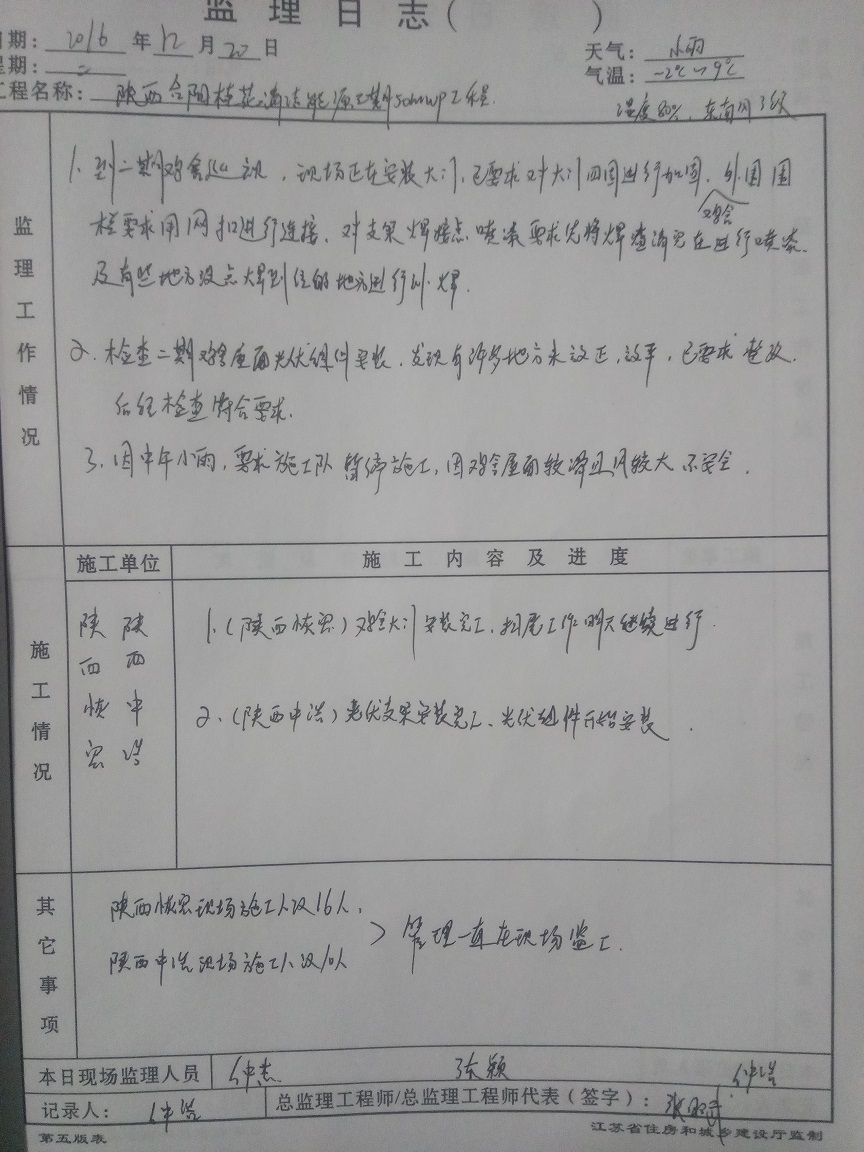 监理日志(
)
日期: 2016 年 12 月 20 日
天气: 小雨
星期: 二
气温: -2℃~9℃
工程名称: 陕西合阳桂花清洁能源二期50MWP工程
湿度80%, 东南风3级
监理工作情况
1. 到二期鸡舍巡视, 现场正在安装大门, 已要求对大门四周进行加固. 鸡舍外围围
栏要求用网扣进行连接. 对支架焊接点喷漆要求先将焊渣清完在进行喷漆.
及有些地方没点焊到位的地方进行补焊.
2. 检查二期鸡舍屋面光伏组件安装, 发现有许多地方未放正, 放平, 已要求整改.
后经检查符合要求.
3. 因中午小雨, 要求施工队暂停施工, 因鸡舍屋面较滑且风较大不安全.
施工情况
施工单位
施工内容及进度
陕西中浩
陕西恢宏
1. (陕西恢宏) 鸡舍大门安装完工, 扫尾工作明天继续进行.
2. (陕西中浩) 光伏支架安装完工、光伏组件开始安装.
其它事项
陕西恢宏现场施工人员16人,
陕西中浩现场施工人员10人
> 管理一直在现场监工.
本日现场监理人员 仲杰 张颖 仲浩
记录人: 仲浩
总监理工程师/总监理工程师代表(签字):
第五版表
江苏省住房和城乡建设厅监制